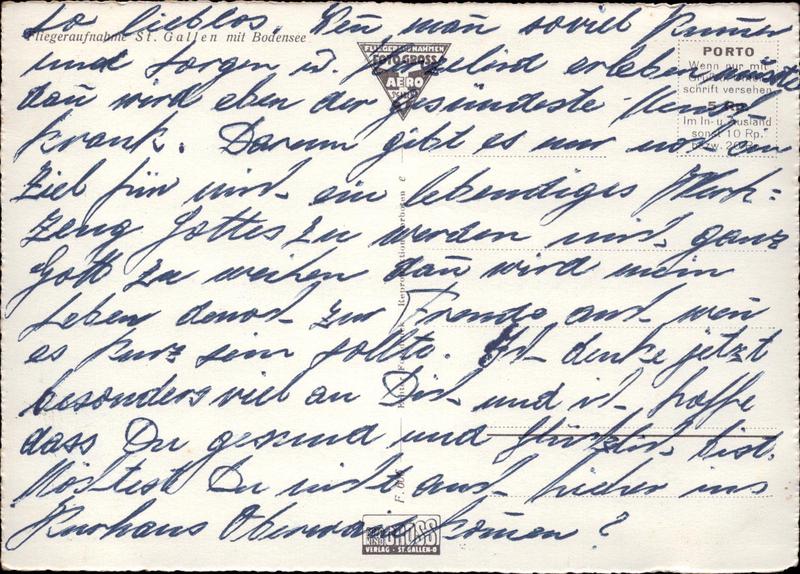 so lieblos. Wen̄ man soviel Kum̄er
Fliegeraufnahme St. Gallen mit Bodensee
und Sorgen u. erleben müsste
dan̄ wird eben der gesündeste Mensch
krank. Darum gibt es nur noch ein
Ziel für mich ein lebendiges Werk=
zeug Gottes zu werden mich ganz
Gott zu weihen dan̄ wird mein
Leben den̄och zur Freude auch wen̄
es kurz sein sollte. Ich denke jetzt
besonders viel an Dich und ich hoffe
dass Du gesund und glücklich bist.
Möchtest Du nicht auch hieher ins
Kurhaus Oberwaid kom̄en?
FLIEGERAUFNAHMEN
FOTO GROSS
AERO
PORTO
Wenn nur mit
schrift versehen
5 Rp.
Im In- u. Ausland
sonst 10 Rp.
bzw. 20 Rp.
Reproduktion verboten
GROSS
VERLAG - ST. GALLEN-O